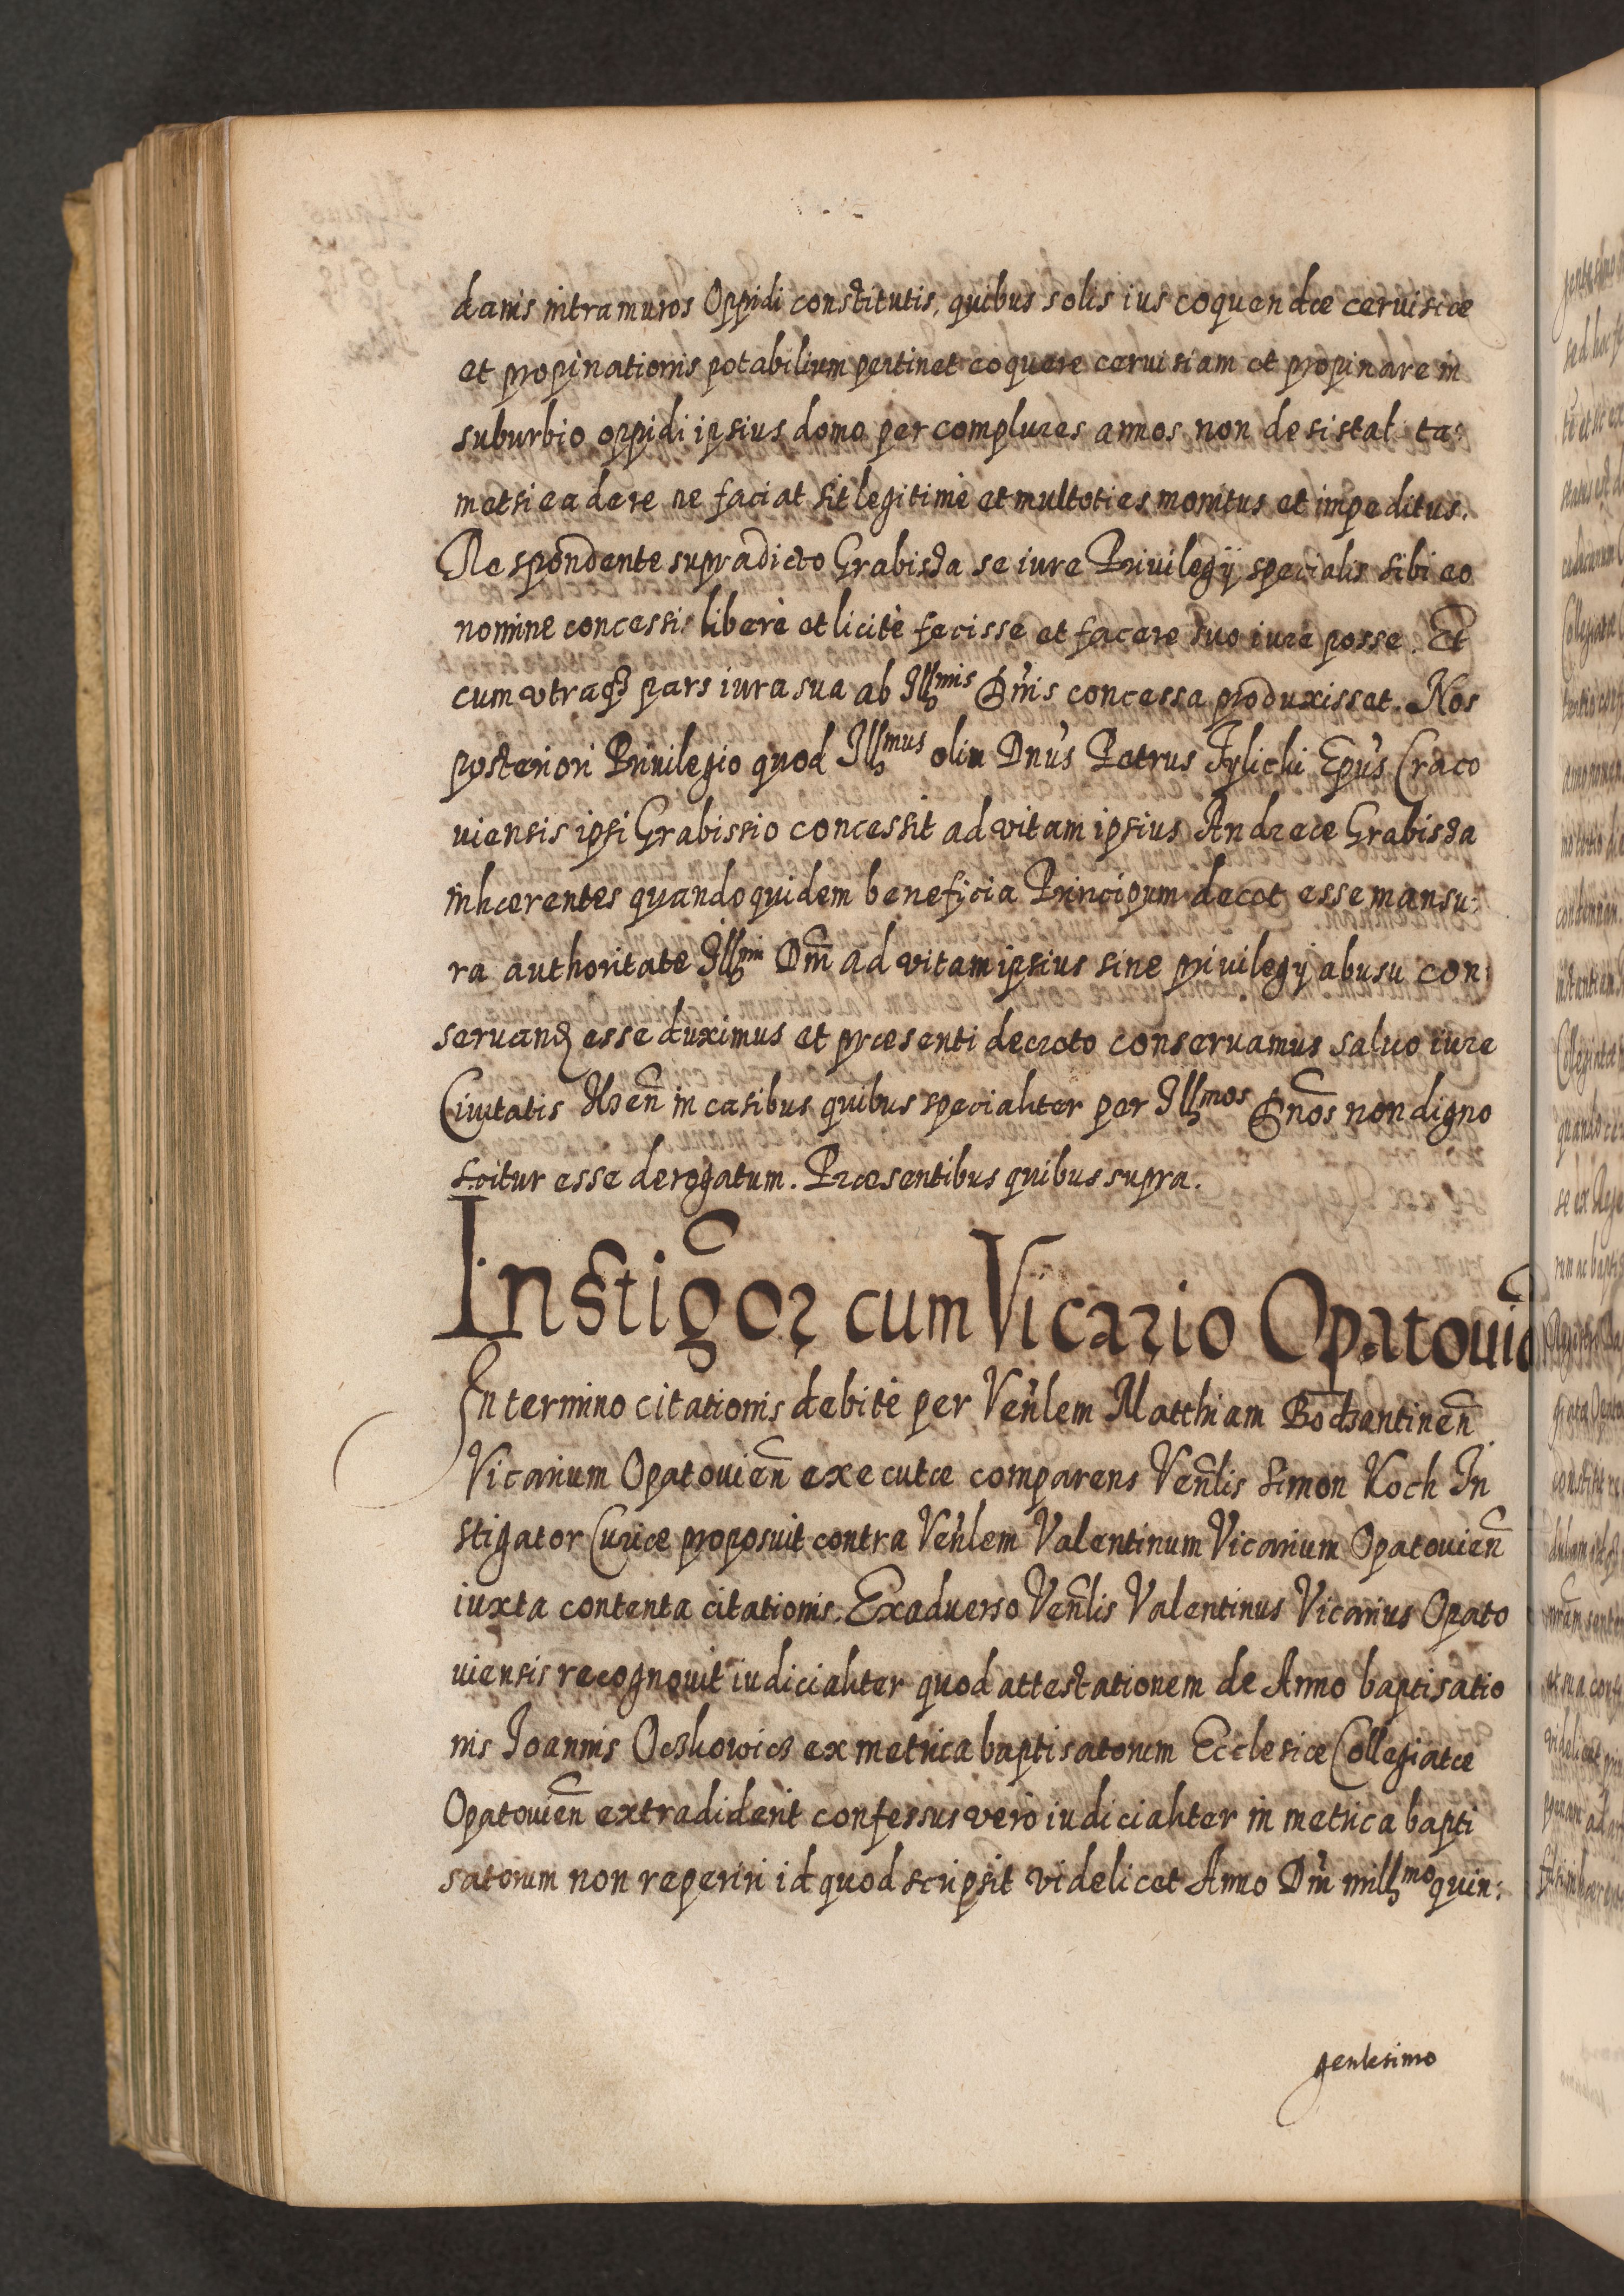 danis intra muros Oppidi constitutis, quibus solis ius coquendæ cervisiæ
et propinationis potabilium pertinet coquere cervisiam et propinare in
suburbio oppidi ipsius domo per complures annos non desistat ta:
metsi ea de re ne faciat sit legitimè et multoties monitus et impeditus.
Respondente supradicto Grabista se iure Privilegÿ specialis sibi eo
nomine concessis liberè et licitè fecisse et facere suo iure posse. Et
cum utraqȝ pars iura sua ab Illmis Dnis concessa produxisset. Nos
posteriori Privilegio quod Illmus olim Dnus Petrus Tylicki Epus Craco
viensis ipsi Grabissio concessit ad vitam ipsius Andreæ Grabista
inhærentes quandoquidem beneficia Principum decet esse mansu:
ra authoritate Illmi Dni ad vitam ipsius sine privilegÿ abusu con:
servand esse duximus et præsenti decreto conservamus salvo iure
Civitatis in casibus quibus specialiter per Illmos Dnos non digno
scitur esse derogatum. Præsentibus quibus supra.
Instigor cum Vicario Opatovien
In termino citationis debitè per Venlem Matthiam Bodzantinen
Vicarium Opatovien executæ comparens Venlis Simon Koch In
stigator Curiæ proposuit contra Venlem Valentinum Vicarium Opatovien
iuxta contenta citationis. Exadverso Venlis Valentinus Vicarius Opato
viensis recognovit iudicialiter quod attestationem de Anno baptisatio
nis Joannis Oczkowicz ex metrica baptisatorum Ecclesiæ Collegiatæ
Opatovien extradiderit confessus verò iudicialiter in metrica bapti
satorum non reperiri id quod scripsit videlicet Anno Dni millmo quin:
gentesimo